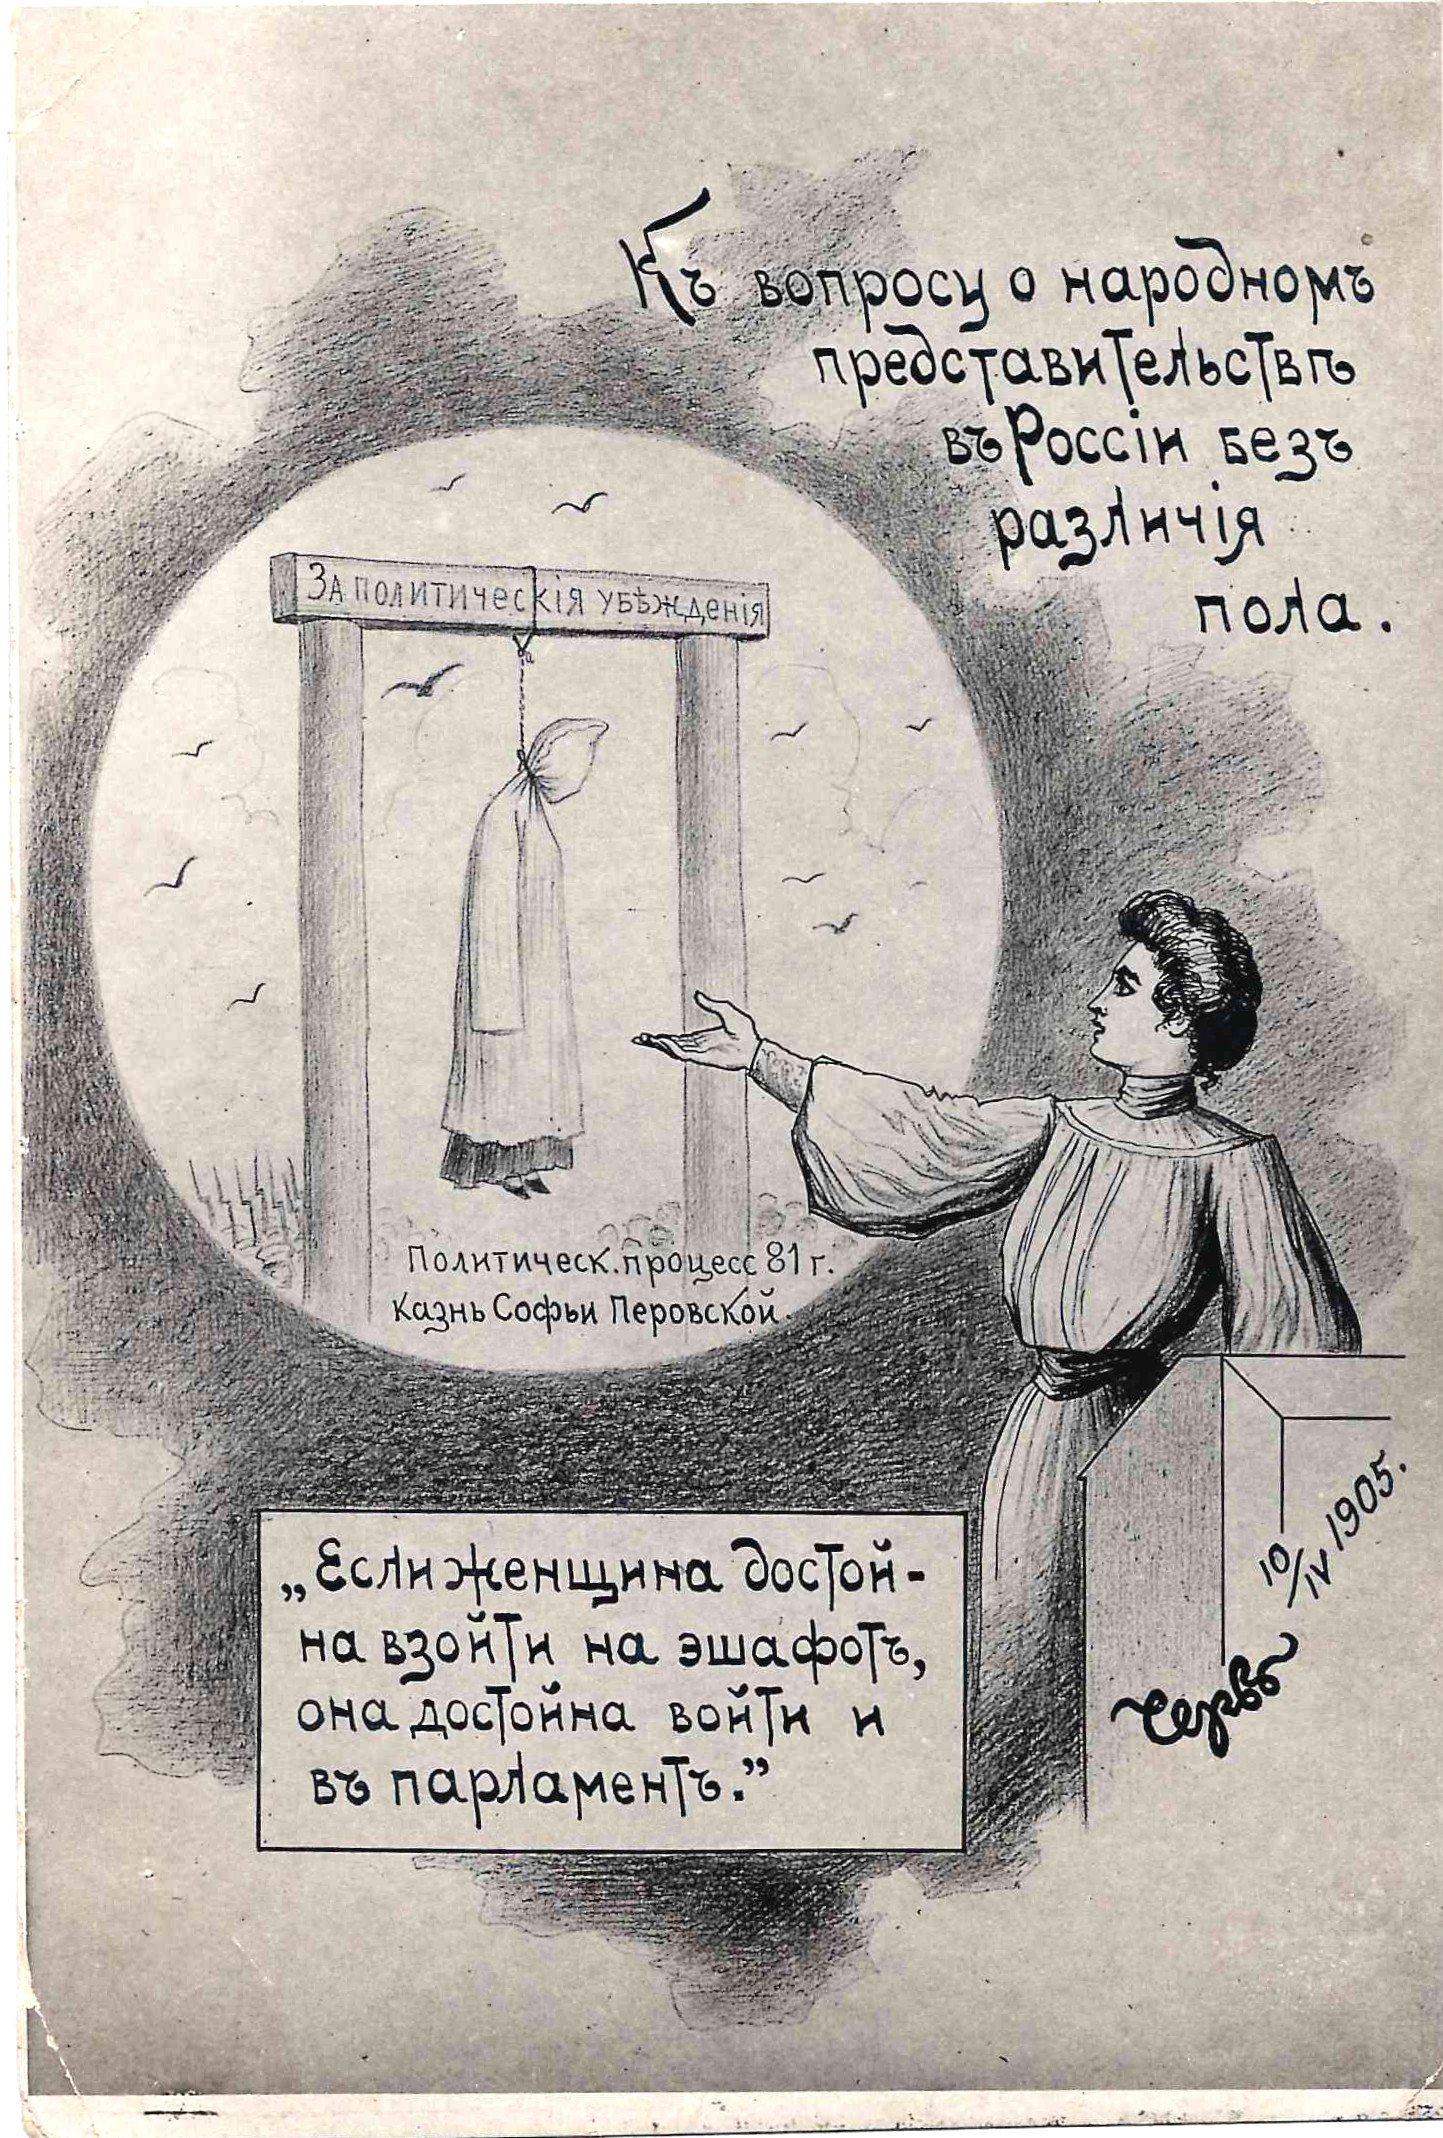 Къ вопросу о народномъ
представительствѣ
въ Россіи безъ
различія
пола.
За политическія убѣжденія
Политическ. процесс 81 г.
Казнь Софьи Перовской.
„Если женщина достой-
на взойти на эшафотъ,
она достойна войти и
въ парламентъ.”
10/IV 1905.